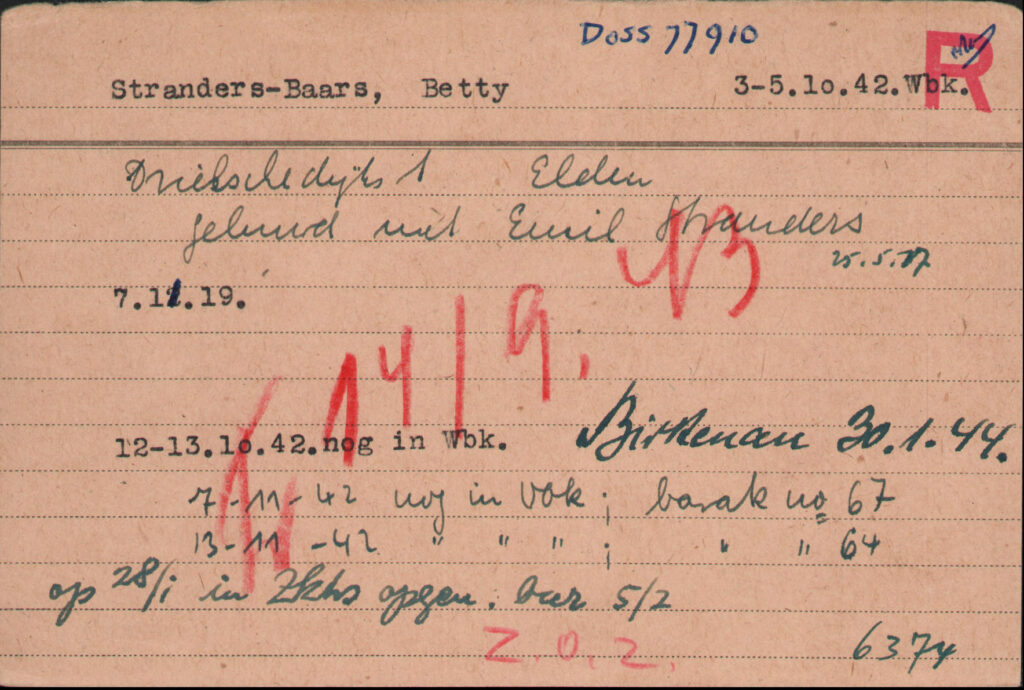 Doss 77910
R
Stranders-Baars, Betty 3-5.1o.42.Wbk.
Drielschedijk 1 Elden
gehuwd met Emil Stranders
25.5.17
7.11.19.
14/9. 43
12-13.1o.42.nog in Wbk. Birkenau 30.1.44.
7-11-42 nog in Wbk; barak no 67
13-11-42 " " " ; " " 64
op 28/1 in Zkhs opgen. bar 5/2
Z.O.Z.
6374